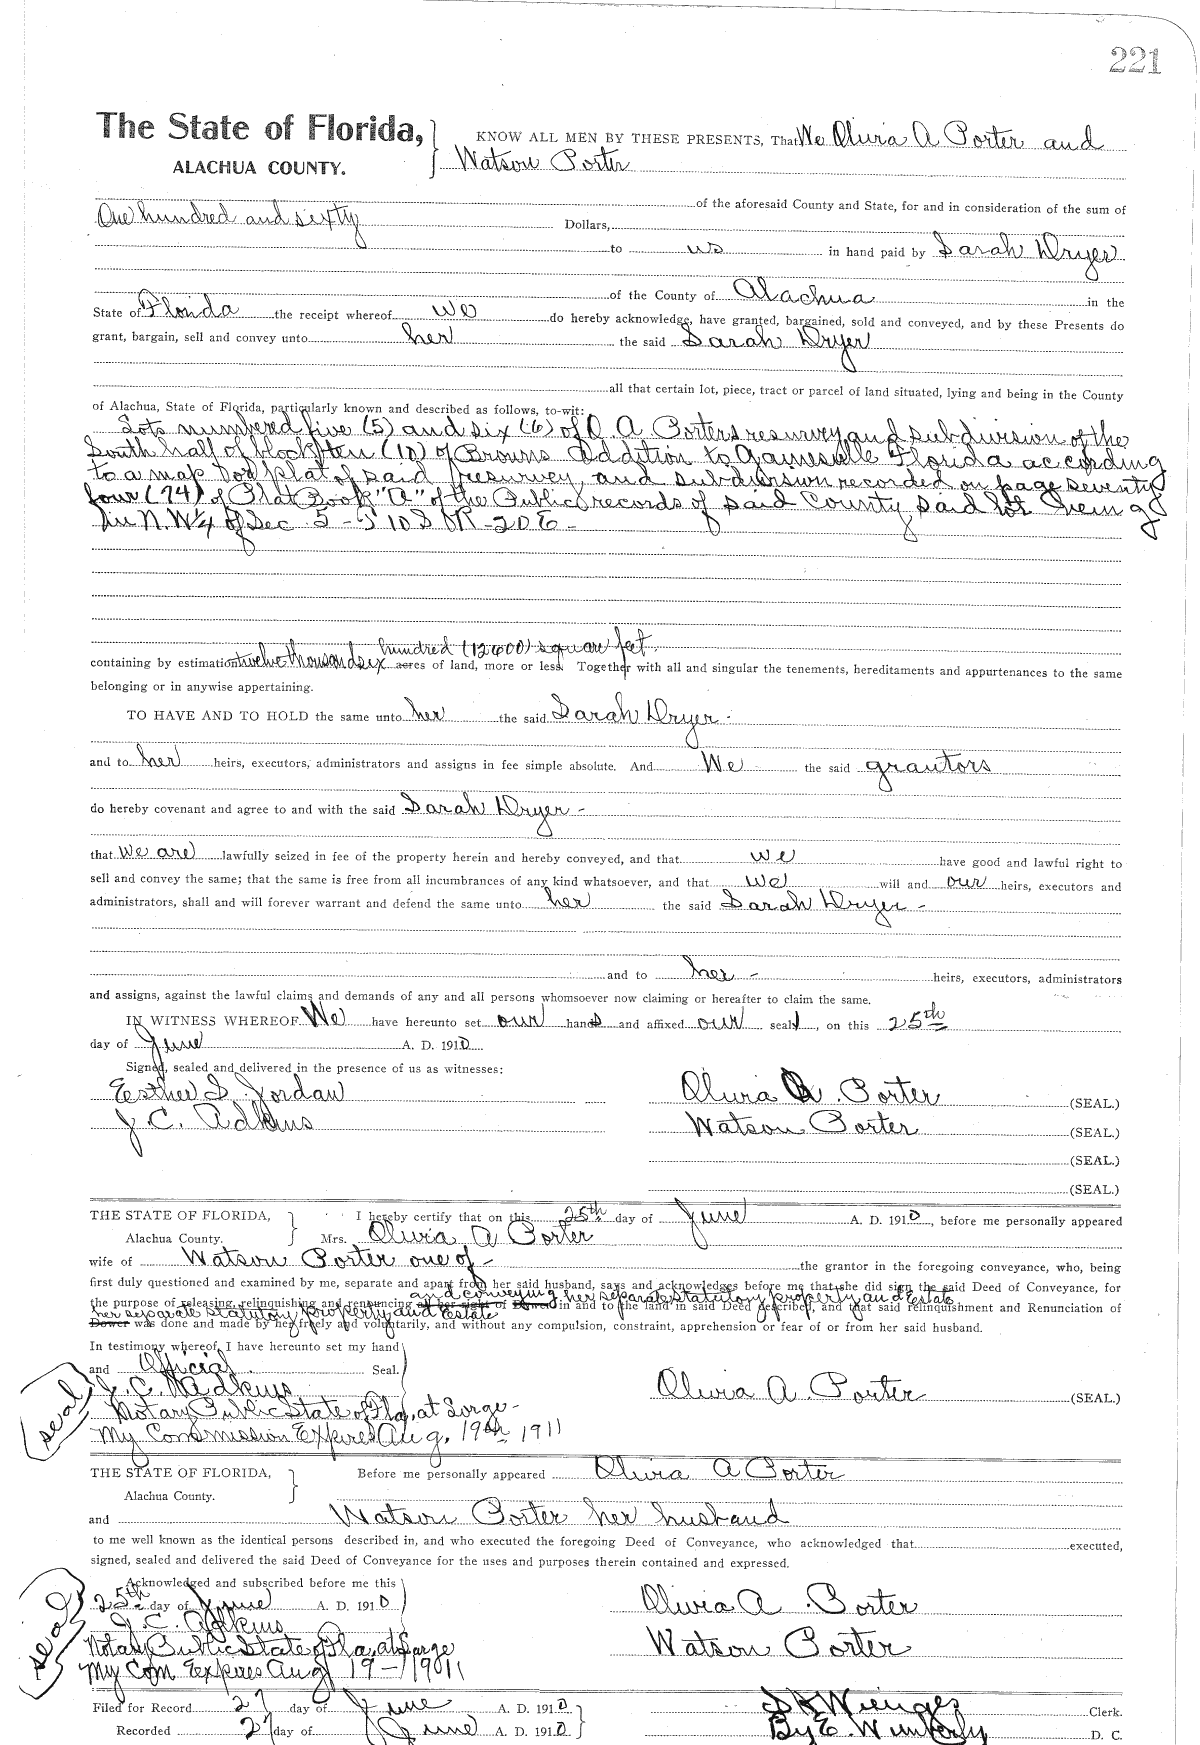 221
The State of Florida,
ALACHUA COUNTY.
KNOW ALL MEN BY THESE PRESENTS, That We Olivia A Porter and
Watson Porter
of the aforesaid County and State, for and in consideration of the sum of
One hundred and sixty Dollars,
to us in hand paid by Sarah Dryer
of the County of Alachua in the
State of Florida the receipt whereof we do hereby acknowledge, have granted, bargained, sold and conveyed, and by these Presents do
grant, bargain, sell and convey unto her the said Sarah Dryer
all that certain lot, piece, tract or parcel of land situated, lying and being in the County
of Alachua, State of Florida, particularly known and described as follows, to-wit:
Lots numbered five (5) and six (6) of O. A. Porters resurvey and subdivision of the
South half of block ten (10) of Browns Addition to Gainesville Florida according
to a map or plat of said resurvey, and subdivision recorded on page seventy
four (74) of Plat Book "A" of the Public records of said County, said lot being
in N.W¼ of Sec 5 - T 10 S R - 20 E -
hundred (12600) square feet
containing by estimation twelve thousand six acres of land, more or less. Together with all and singular the tenements, hereditaments and appurtenances to the same
belonging or in anywise appertaining.
TO HAVE AND TO HOLD the same unto her the said Sarah Dryer -
and to her heirs, executors, administrators and assigns in fee simple absolute. And We the said grantors
do hereby covenant and agree to and with the said Sarah Dryer -
that we are lawfully seized in fee of the property herein and hereby conveyed, and that we have good and lawful right to
sell and convey the same; that the same is free from all incumbrances of any kind whatsoever, and that we will and our heirs, executors and
administrators, shall and will forever warrant and defend the same unto her the said Sarah Dryer -
and to her - heirs, executors, administrators
and assigns, against the lawful claims and demands of any and all persons whomsoever now claiming or hereafter to claim the same.
IN WITNESS WHEREOF We have hereunto set our hands and affixed our seals, on this 25th
day of June A. D. 1910
Signed, sealed and delivered in the presence of us as witnesses:
Esther S. Jordan Olivia A. Porter (SEAL.)
J. C. Adkins Watson Porter (SEAL.)
(SEAL.)
(SEAL.)
THE STATE OF FLORIDA,
Alachua County.
I hereby certify that on this 25th day of June A. D. 1910, before me personally appeared
Mrs. Olivia A Porter
wife of Watson Porter one of - the grantor in the foregoing conveyance, who, being
first duly questioned and examined by me, separate and apart from her said husband, says and acknowledges before me that she did sign the said Deed of Conveyance, for
and conveying her separate statutory property and Estate
the purpose of releasing, relinquishing and renouncing all her right of Dower in and to the land in said Deed described, and that said relinquishment and Renunciation of
her separate statutory property and Estate
Dower was done and made by her freely and voluntarily, and without any compulsion, constraint, apprehension or fear of or from her said husband.
In testimony whereof, I have hereunto set my hand
and Official Seal.
seal
J. C. Adkins
Olivia A. Porter (SEAL.)
Notary Public State of Fla, at Large -
My Commission Expires Aug, 19th 1911
THE STATE OF FLORIDA,
Alachua County.
Before me personally appeared Olivia A Porter
and Watson Porter her husband
to me well known as the identical persons described in, and who executed the foregoing Deed of Conveyance, who acknowledged that executed,
signed, sealed and delivered the said Deed of Conveyance for the uses and purposes therein contained and expressed.
Acknowledged and subscribed before me this
25th day of June A. D. 1910
seal
Olivia A. Porter
J. C. Adkins
Notary Public State of Fla, at Large
Watson Porter
My Com Expires Aug 19 - 1911
Filed for Record 27 day of June A. D. 1910
S H Wienges Clerk.
Recorded 27 day of June A. D. 1910
By E. Wimberly D. C.